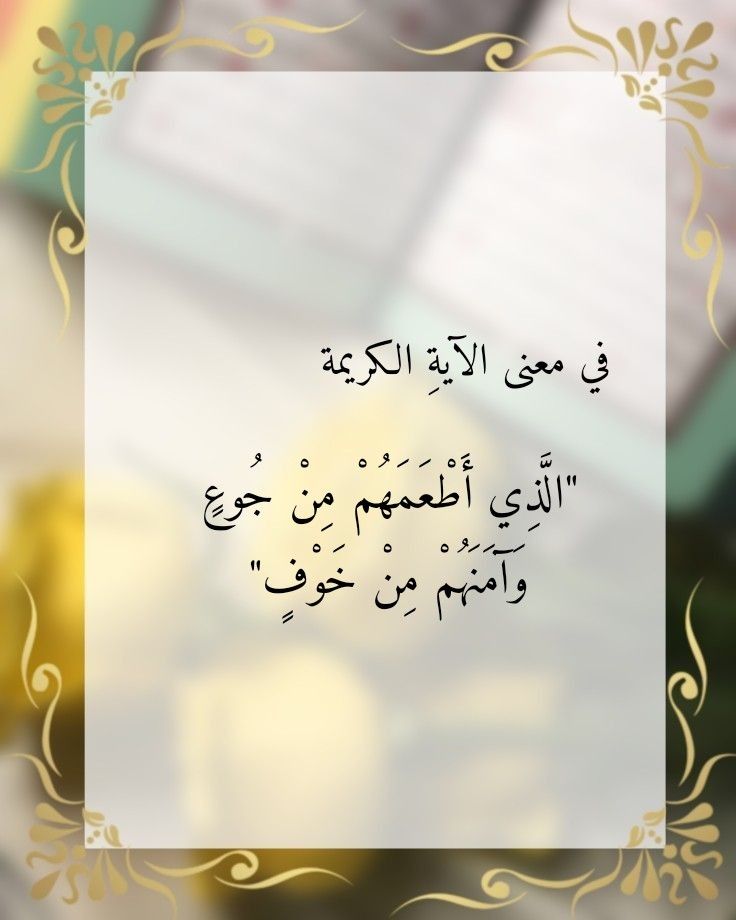 في معنى الآيةِ الكريمة
"الَّذِي أَطْعَمَهُمْ مِنْ جُوعٍ
وَآمَنَهُمْ مِنْ خَوْفٍ"